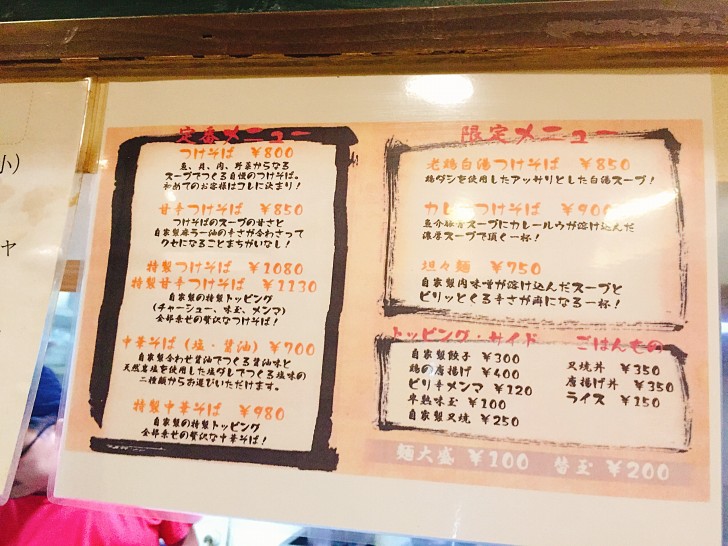 小)
ヤ
定番メニュー
つけそば ¥800
魚、貝、肉、野菜からなる
スープでつくる自慢のつけそば。
初めてのお客様はコレに決まり!
甘辛つけそば ¥850
つけそばのスープの甘さと
自家製麻ラー油の辛さが合わさって
クセになることまちがいなし!
特製つけそば ¥1080
特製甘辛つけそば ¥1130
自家製の特製トッピング
(チャーシュー、味玉、メンマ)
全部乗せの贅沢なつけそば!
中華そば(塩・醤油) ¥700
自家製合わせ醤油でつくる醤油味と
天然岩塩を使用した塩ダレでつくる塩味の
二種類からお選びいただけます。
特製中華そば ¥980
自家製の特製トッピング
全部乗せの贅沢な中華そば!
限定メニュー
老鶏白湯つけそば ¥850
鶏ダシを使用したアッサリとした白湯スープ!
カレーつけそば ¥900
魚介豚骨スープにカレールウが溶け込んだ
濃厚スープで頂く一杯!
坦々麺 ¥750
自家製肉味噌が溶け込んだスープと
ピリッとくる辛さが病になる一杯!
トッピング・サイド
自家製餃子 ¥300
鶏の唐揚げ ¥400
ピリ辛メンマ ¥120
半熟味玉 ¥100
自家製叉焼 ¥250
ごはんもの
叉焼丼 ¥350
唐揚げ丼 ¥350
ライス ¥150
麺大盛 ¥100 替玉 ¥200